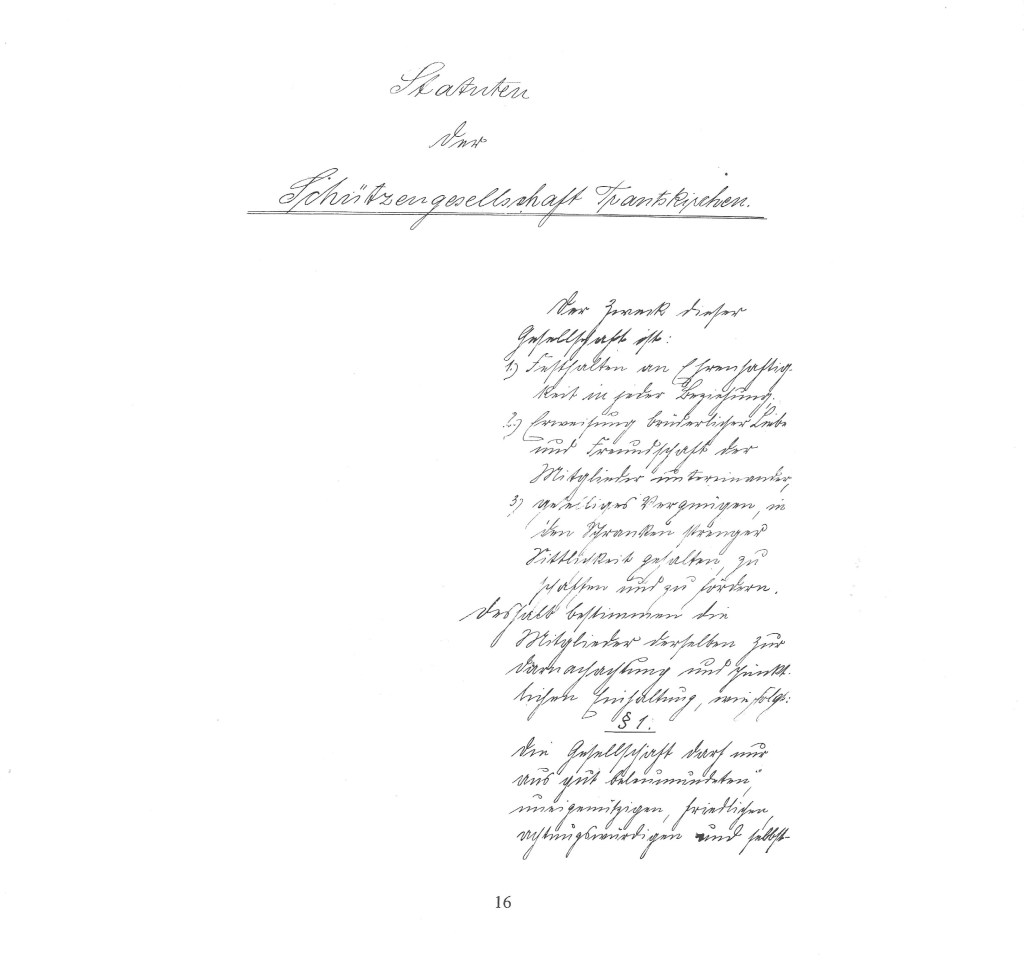 Statuten
der
Schützengesellschaft Trantskirchen.
Der Zweck dieser
Gesellschaft ist:
1.) Festhalten an Ehrenhaftig-
keit in jeder Beziehung,
2.) Erweisung brüderlicher Liebe
und Freundschaft der
Mitglieder untereinander,
3) geselliges Vergnügen, in
den Schranken strenger
Sittlichkeit gehalten, zu
schaffen und zu fördern.
Deshalb bestimmen die
Mitglieder derselben zur
Darnachachtung und pünkt-
lichen Einhaltung, wie folgt:
§ 1.
Die Gesellschaft darf nur
aus gut beleumundeten,
uneigennützigen, friedlichen,
achtungswürdigen und selbst-
16